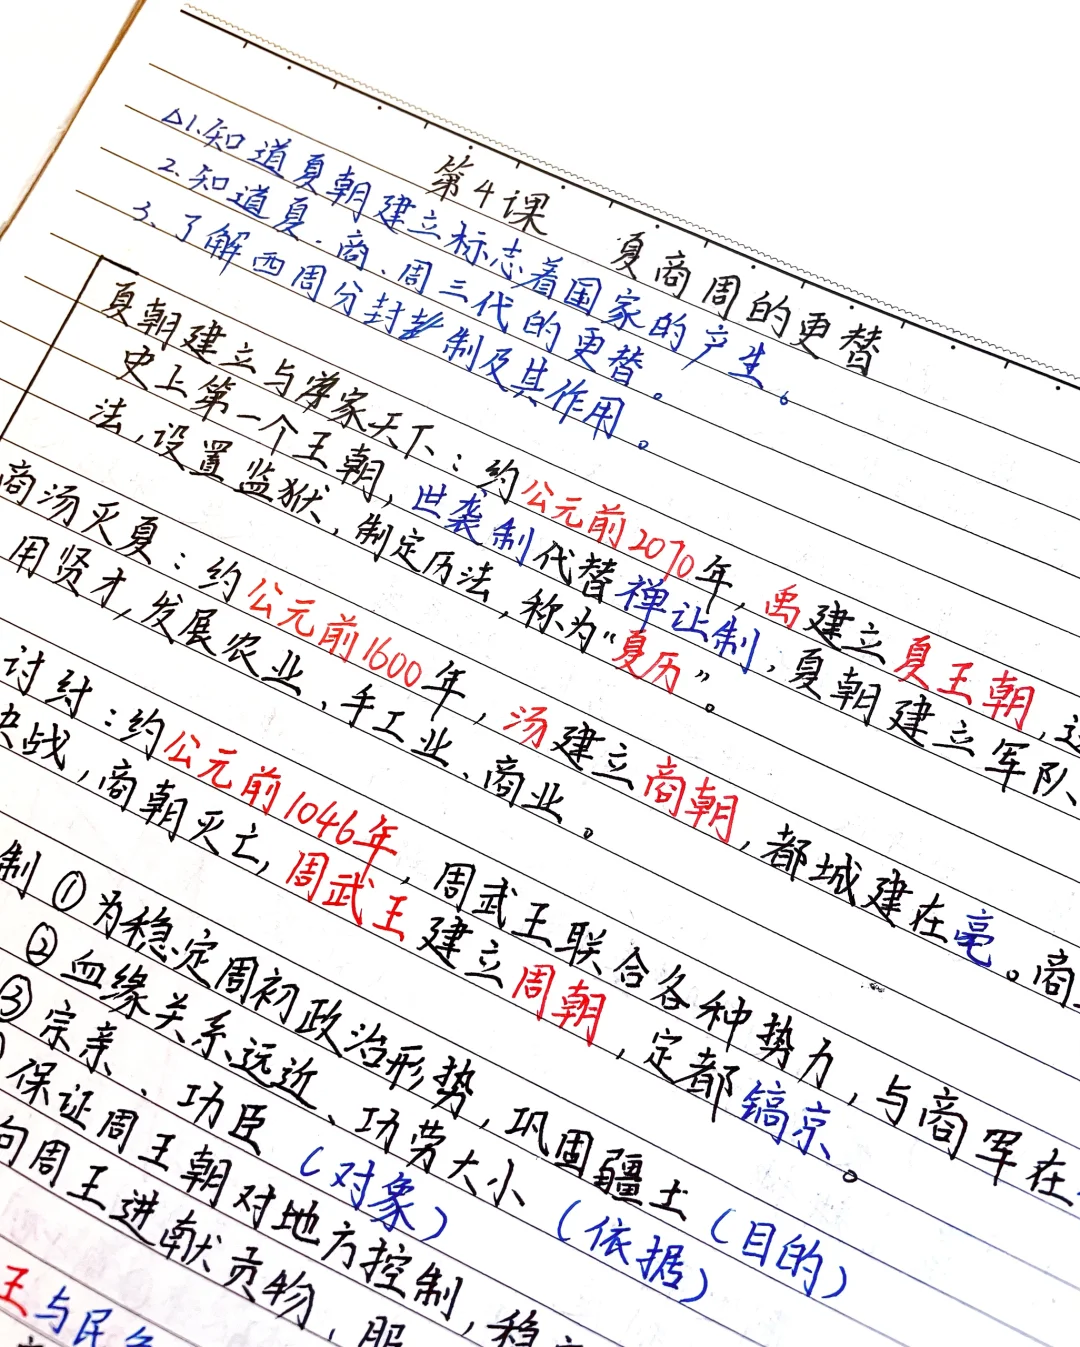 第4课 夏商周的更替
△1.知道夏朝建立标志着国家的产生。
2.知道夏、商、周三代的更替。
3.了解西周分封制及其作用。
夏朝建立与家天下：约公元前2070年，禹建立夏王朝，这
史上第一个王朝，世袭制代替禅让制，夏朝建立军队、
法，设置监狱，制定历法，称为“夏历”。
商汤灭夏：约公元前1600年，汤建立商朝，都城建在亳。商
用贤才，发展农业、手工业、商业。
讨纣：约公元前1046年，周武王联合各种势力，与商军在
决战，商朝灭亡，周武王建立周朝，定都镐京。
制①为稳定周初政治形势，巩固疆土（目的）
②血缘关系远近、功劳大小（依据）
③宗亲、功臣（对象）
保证周王朝对地方控制，稳
向周王进献贡物，服
王与民